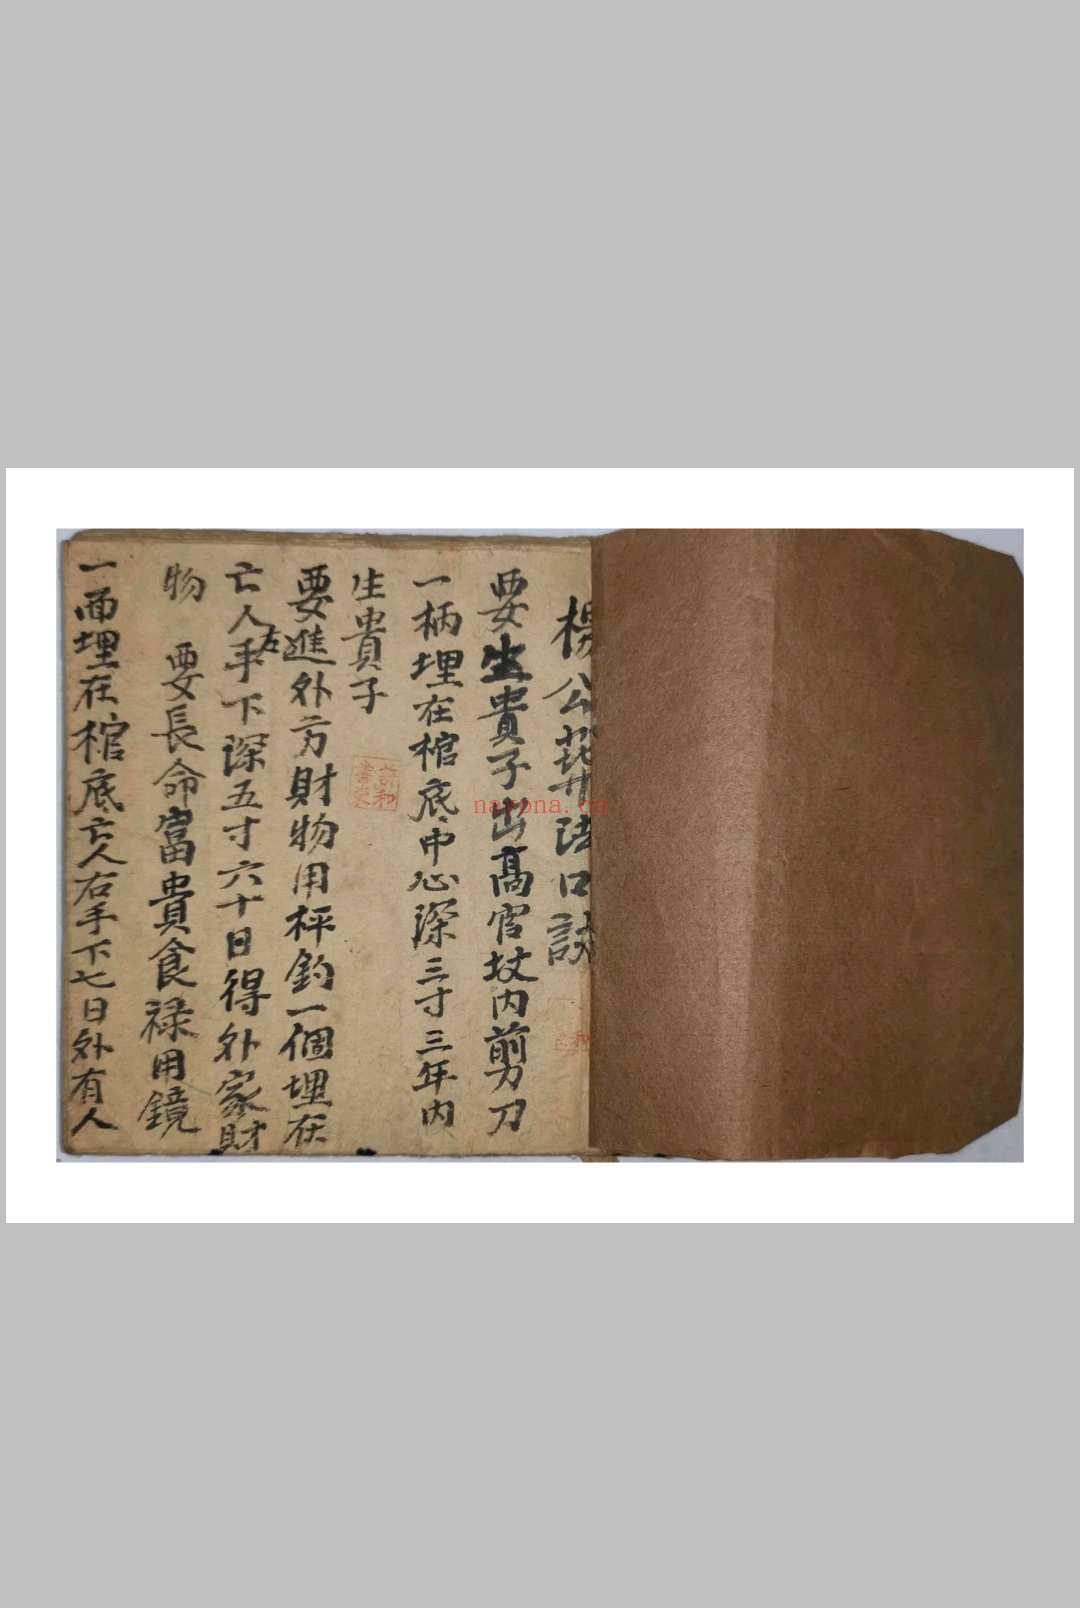 楊公葬法口訣
要生貴子出高官坟内剪刀
一柄埋在棺底中心深三寸三年内
生貴子
要進外方財物用秤鈎一個埋在
亡人左手下深五寸六十日得外家財
物 要長命富貴食禄用鏡
一面埋在棺底亡人右手下七日外有人
nayona.cn